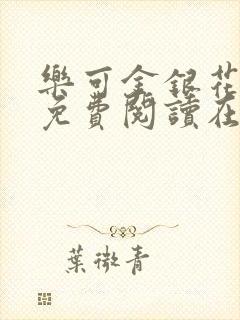 樂可金銀花
免費閱讀在
葉微青